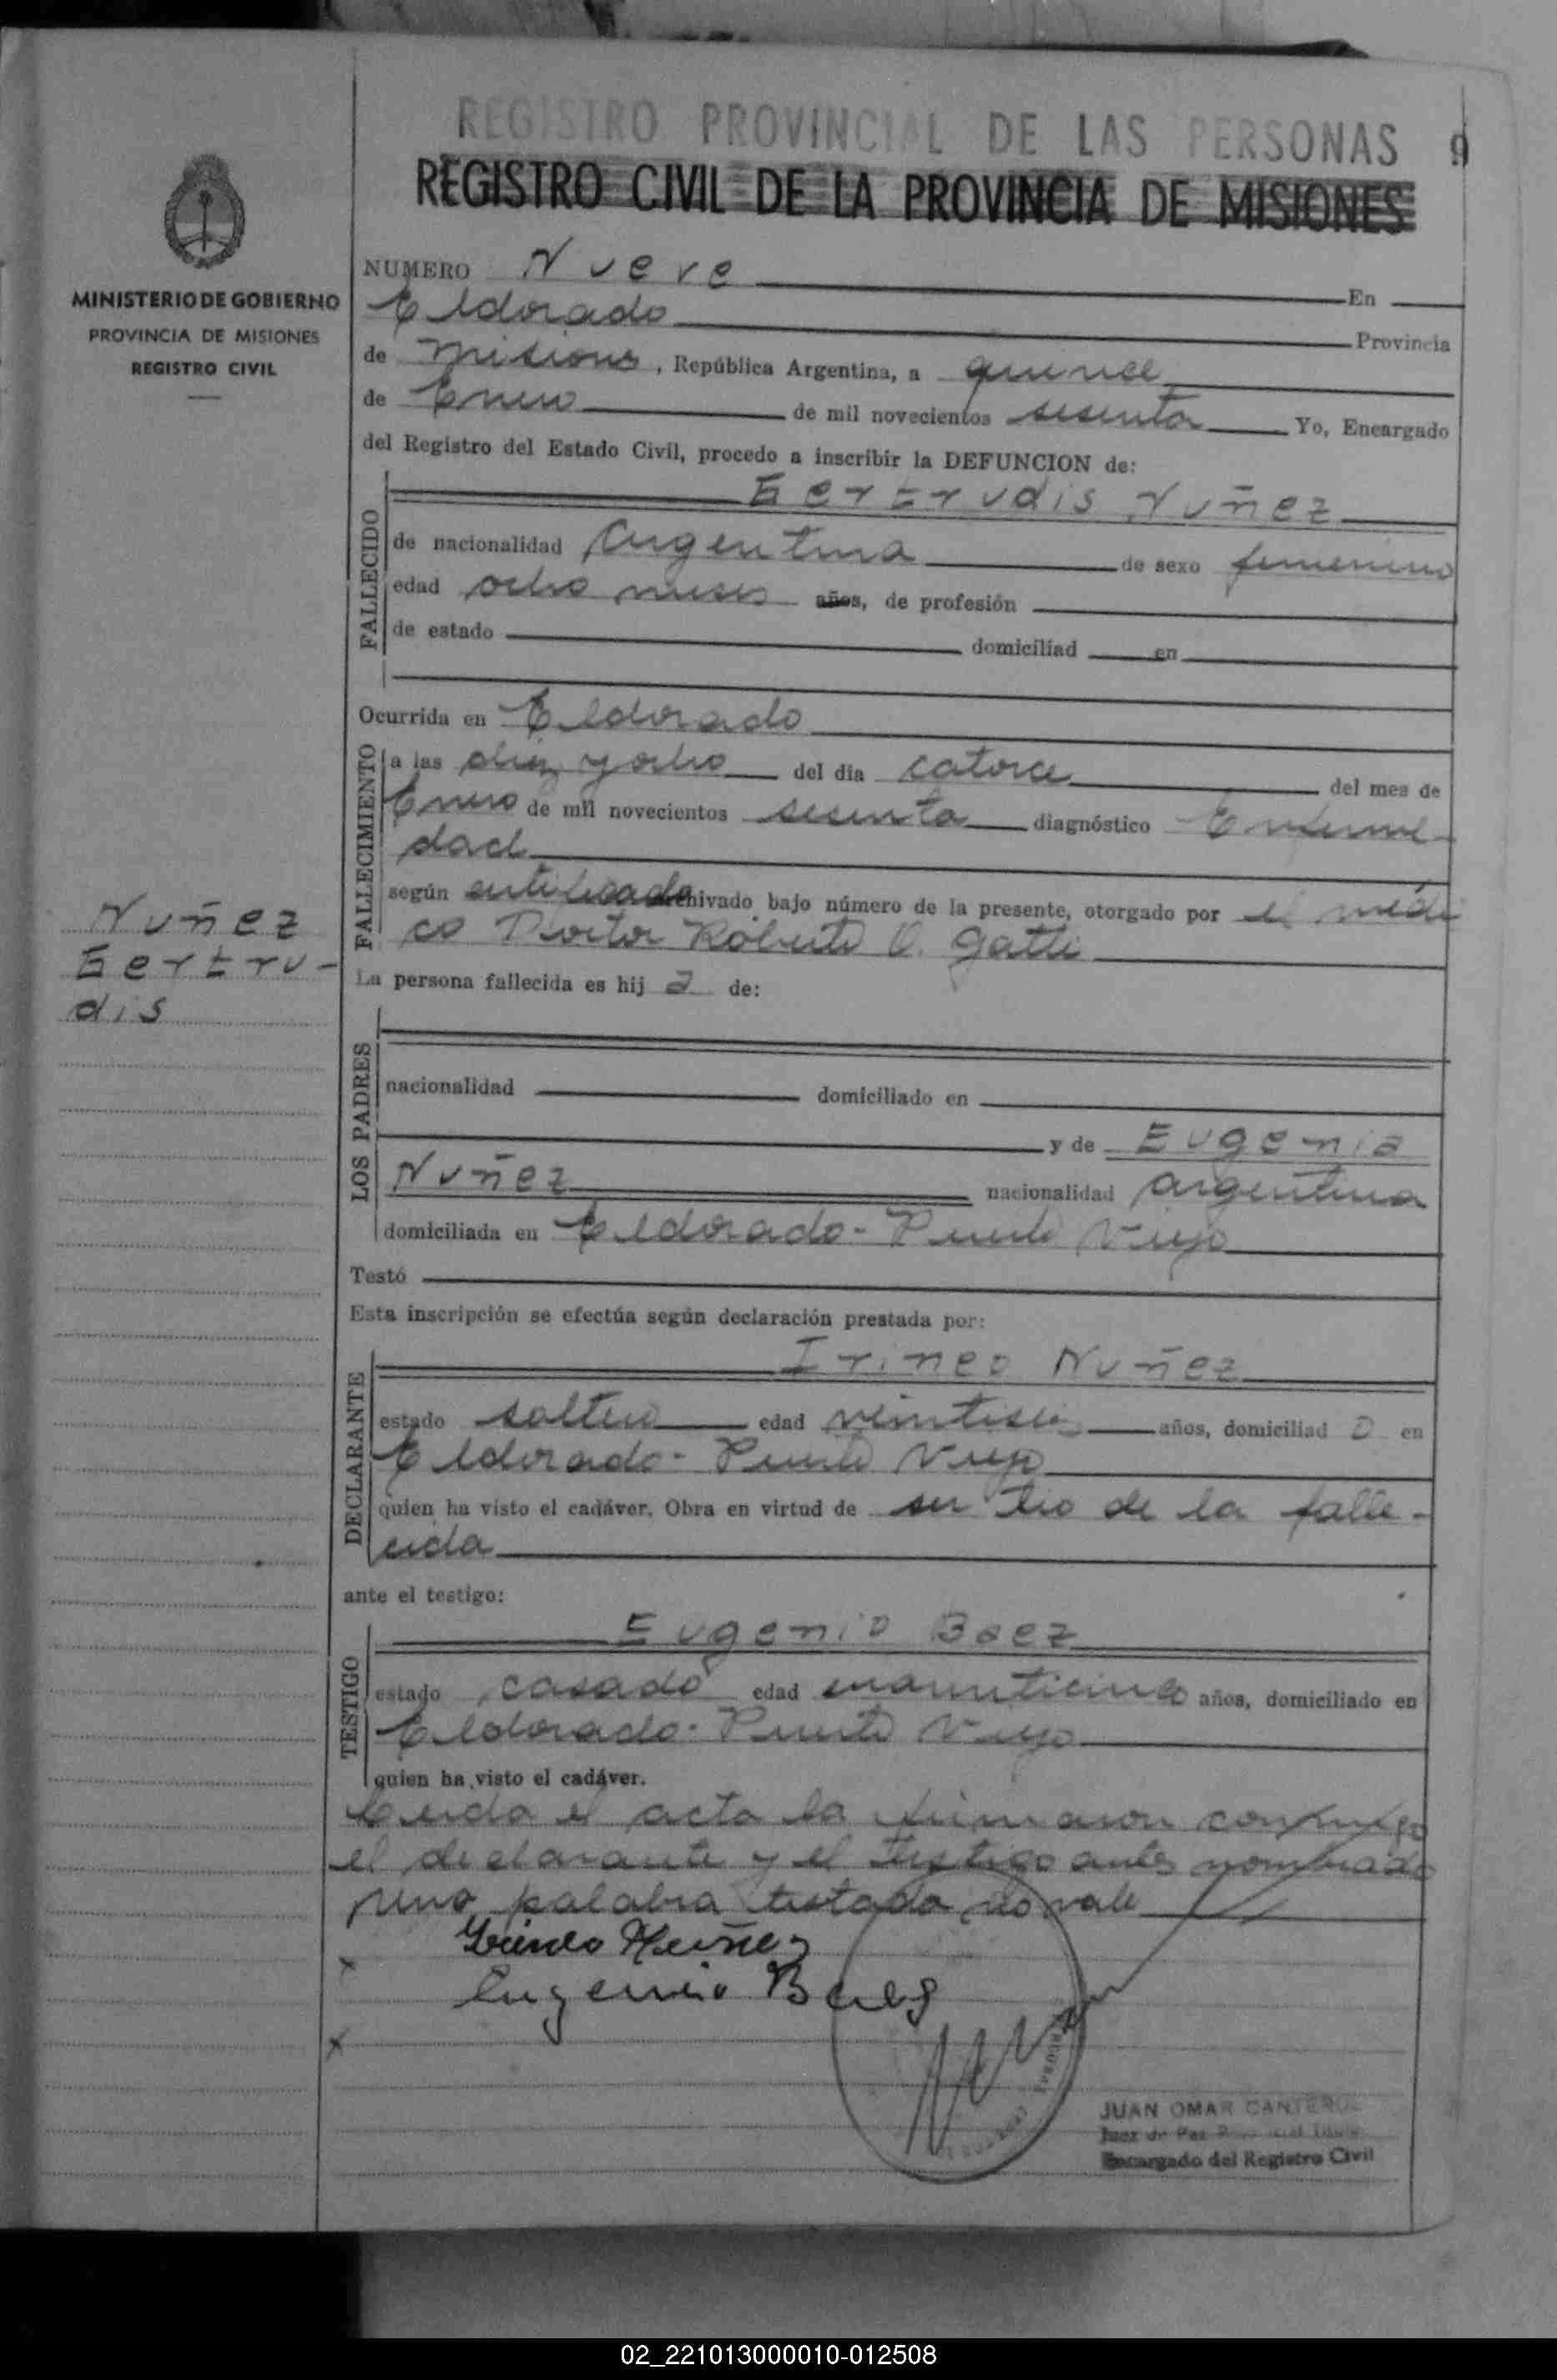 REGISTRO PROVINCIAL DE LAS PERSONAS 9
REGISTRO CIVIL DE LA PROVINCIA DE MISIONES
MINISTERIO DE GOBIERNO
PROVINCIA DE MISIONES
REGISTRO CIVIL
Nuñez
Gertru-
dis
NUMERO Nueve En
Eldorado Provincia
de Misiones, República Argentina, a quince
de Enero de mil novecientos sesenta Yo, Encargado
del Registro del Estado Civil, procedo a inscribir la DEFUNCION de:
FALLECIDO
Gertrudis Nuñez
de nacionalidad Argentina de sexo femenino
edad ocho meses años, de profesión
de estado domiciliad en
Ocurrida en Eldorado
FALLECIMIENTO
a las diez y ocho del día catorce del mes de
Enero de mil novecientos sesenta diagnóstico Enferme-
dad
según certificado archivado bajo número de la presente, otorgado por el médi
co Doctor Roberto O. Gatti
La persona fallecida es hij a de:
LOS PADRES
nacionalidad domiciliado en
y de Eugenia
Nuñez nacionalidad argentina
domiciliada en Eldorado - Puerto Viejo
Testó
Esta inscripción se efectúa según declaración prestada por:
DECLARANTE
Irineo Nuñez
estado soltero edad veintiseis años, domiciliad o en
Eldorado - Puerto Viejo
quien ha visto el cadáver. Obra en virtud de ser tio de la falle-
cida
ante el testigo:
TESTIGO
Eugenio Baez
estado casado edad cuarenticinco años, domiciliado en
Eldorado - Puerto Viejo
quien ha visto el cadáver.
Leida el acta la firmaron conmigo
el declarante y el testigo antes nombrado
una palabra testada no vale
Irineo Nuñez
Eugenio Baes
JUAN OMAR CANTERO
Juez de Paz
Encargado del Registro Civil
02_221013000010-012508